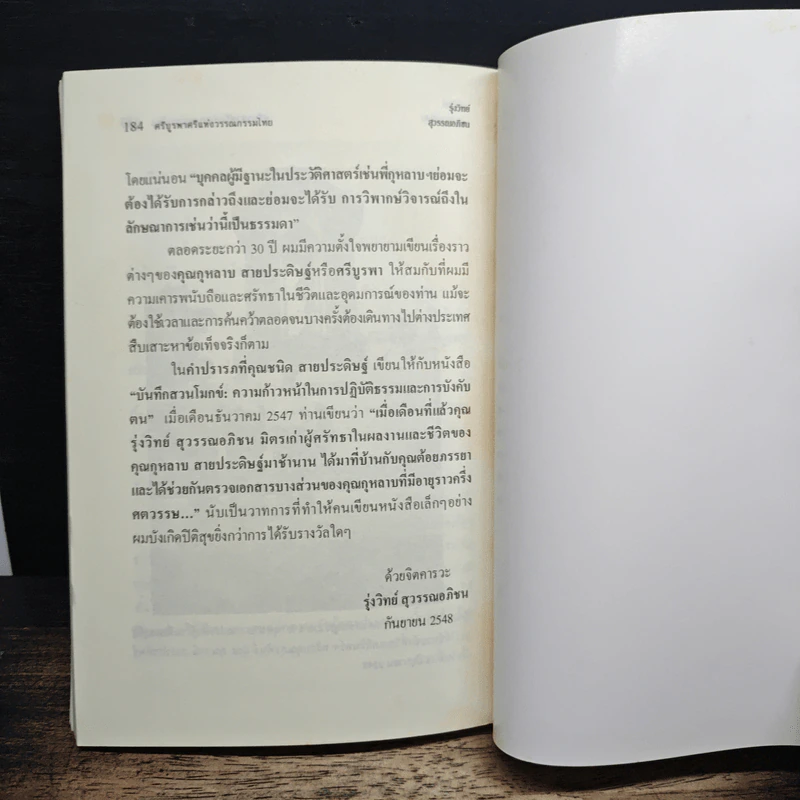 184 ศรีบูรพาศรีแห่งวรรณกรรมไทย
รุ่งวิทย์
สุวรรณอภิชน
โดยแน่นอน "บุคคลผู้มีฐานะในประวัติศาสตร์เช่นพี่กุหลาบฯย่อมจะ
ต้องได้รับการกล่าวถึงและย่อมจะได้รับ การวิพากษ์วิจารณ์ถึงใน
ลักษณาการเช่นว่านี้เป็นธรรมดา"
ตลอดระยะกว่า 30 ปี ผมมีความตั้งใจพยายามเขียนเรื่องราว
ต่างๆของคุณกุหลาบ สายประดิษฐ์หรือศรีบูรพา ให้สมกับที่ผมมี
ความเคารพนับถือและศรัทธาในชีวิตและอุดมการณ์ของท่าน แม้จะ
ต้องใช้เวลาและการค้นคว้าตลอดจนบางครั้งต้องเดินทางไปต่างประเทศ
สืบเสาะหาข้อเท็จจริงก็ตาม
ในคำปรารภที่คุณชนิด สายประดิษฐ์ เขียนให้กับหนังสือ
"บันทึกสวนโมกข์: ความก้าวหน้าในการปฏิบัติธรรมและการบังคับ
ตน" เมื่อเดือนธันวาคม 2547 ท่านเขียนว่า "เมื่อเดือนที่แล้วคุณ
รุ่งวิทย์ สุวรรณอภิชน มิตรเก่าผู้ศรัทธาในผลงานและชีวิตของ
คุณกุหลาบ สายประดิษฐ์มาช้านาน ได้มาที่บ้านกับคุณต้อยภรรยา
และได้ช่วยกันตรวจเอกสารบางส่วนของคุณกุหลาบที่มีอายุราวครึ่ง
ศตวรรษ..." นับเป็นวาทการที่ทำให้คนเขียนหนังสือเล็กๆอย่าง
ผมบังเกิดปิติสุขยิ่งกว่าการได้รับรางวัลใดๆ
ด้วยจิตคารวะ
รุ่งวิทย์ สุวรรณอภิชน
กันยายน 2548